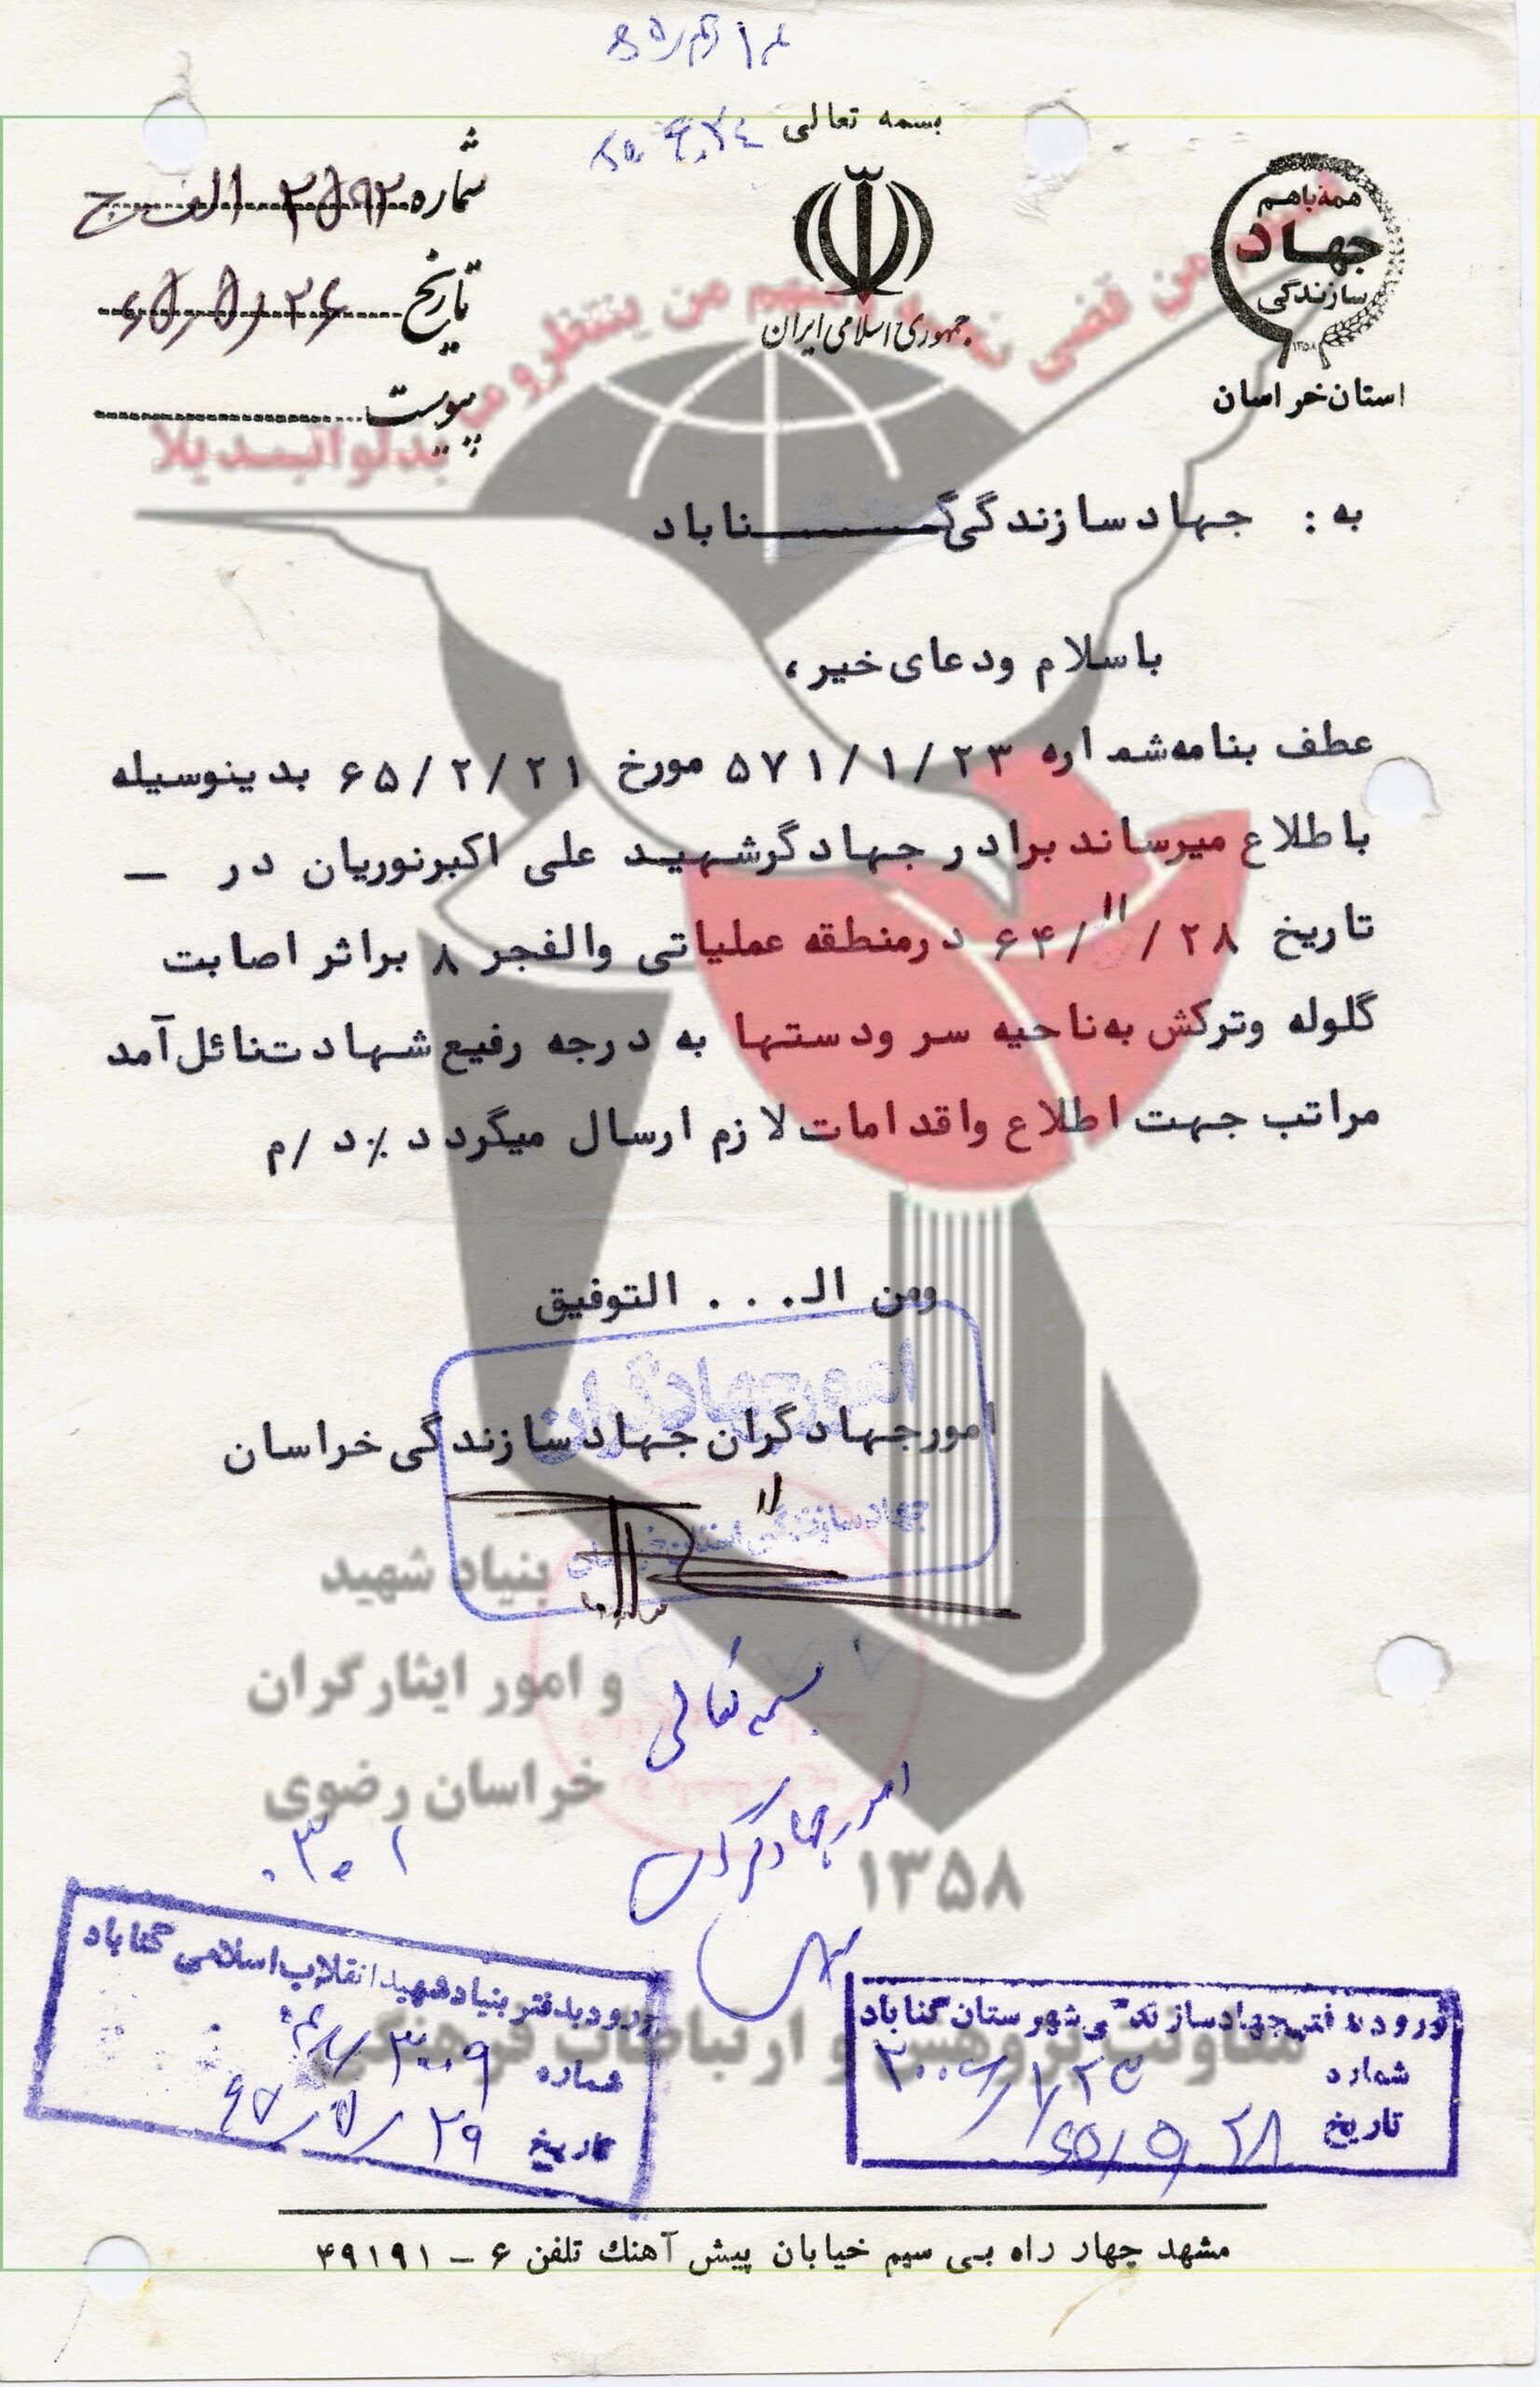 بسمه تعالی
همه باهم
جهاد
سازندگی
۱۳۵۸
استان خراسان
جمهوری اسلامی ایران
شماره ۲۵۹۲ الف ج
تاریخ ۶۵/۵/۲۶
پیوست
من قضی نحبه و منهم من ینتظر و ما
بدلوا تبدیلا
به : جهاد سازندگی گناباد
باسلام ودعای خیر ،
عطف بنامه شماره ۵۷۱/۱/۲۳ مورخ ۶۵/۲/۲۱ بدینوسیله
باطلاع میرساند برادر جهادگر شهید علی اکبر نوریان در –
تاریخ ۶۴/۱۱/۲۸ درمنطقه عملیاتی والفجر ۸ براثر اصابت
گلوله وترکش به ناحیه سر ودستها به درجه رفیع شهادت نائل آمد
مراتب جهت اطلاع واقدامات لازم ارسال میگردد ٪ د /م
ومن ال... التوفیق
امور جهادگران جهاد سازندگی خراسان
امور جهادگران
جهاد سازندگی استان خراسان
بنیاد شهید
و امور ایثارگران
خراسان رضوی
۱۳۵۸
معاونت پژوهش و ارتباطات فرهنگی
بسمه تعالی
امور جهادگران
ورود بدفتر بنیاد شهید انقلاب اسلامی گناباد
شماره ۳۰۰۹
تاریخ ۶۵/۵/۲۹
ورود به دفتر جهاد سازندگی شهرستان گناباد
شماره
تاریخ ۶۵/۵/۲۸
مشهد چهار راه بی سیم خیابان پیش آهنك تلفن ۶ – ۴۹۱۹۱